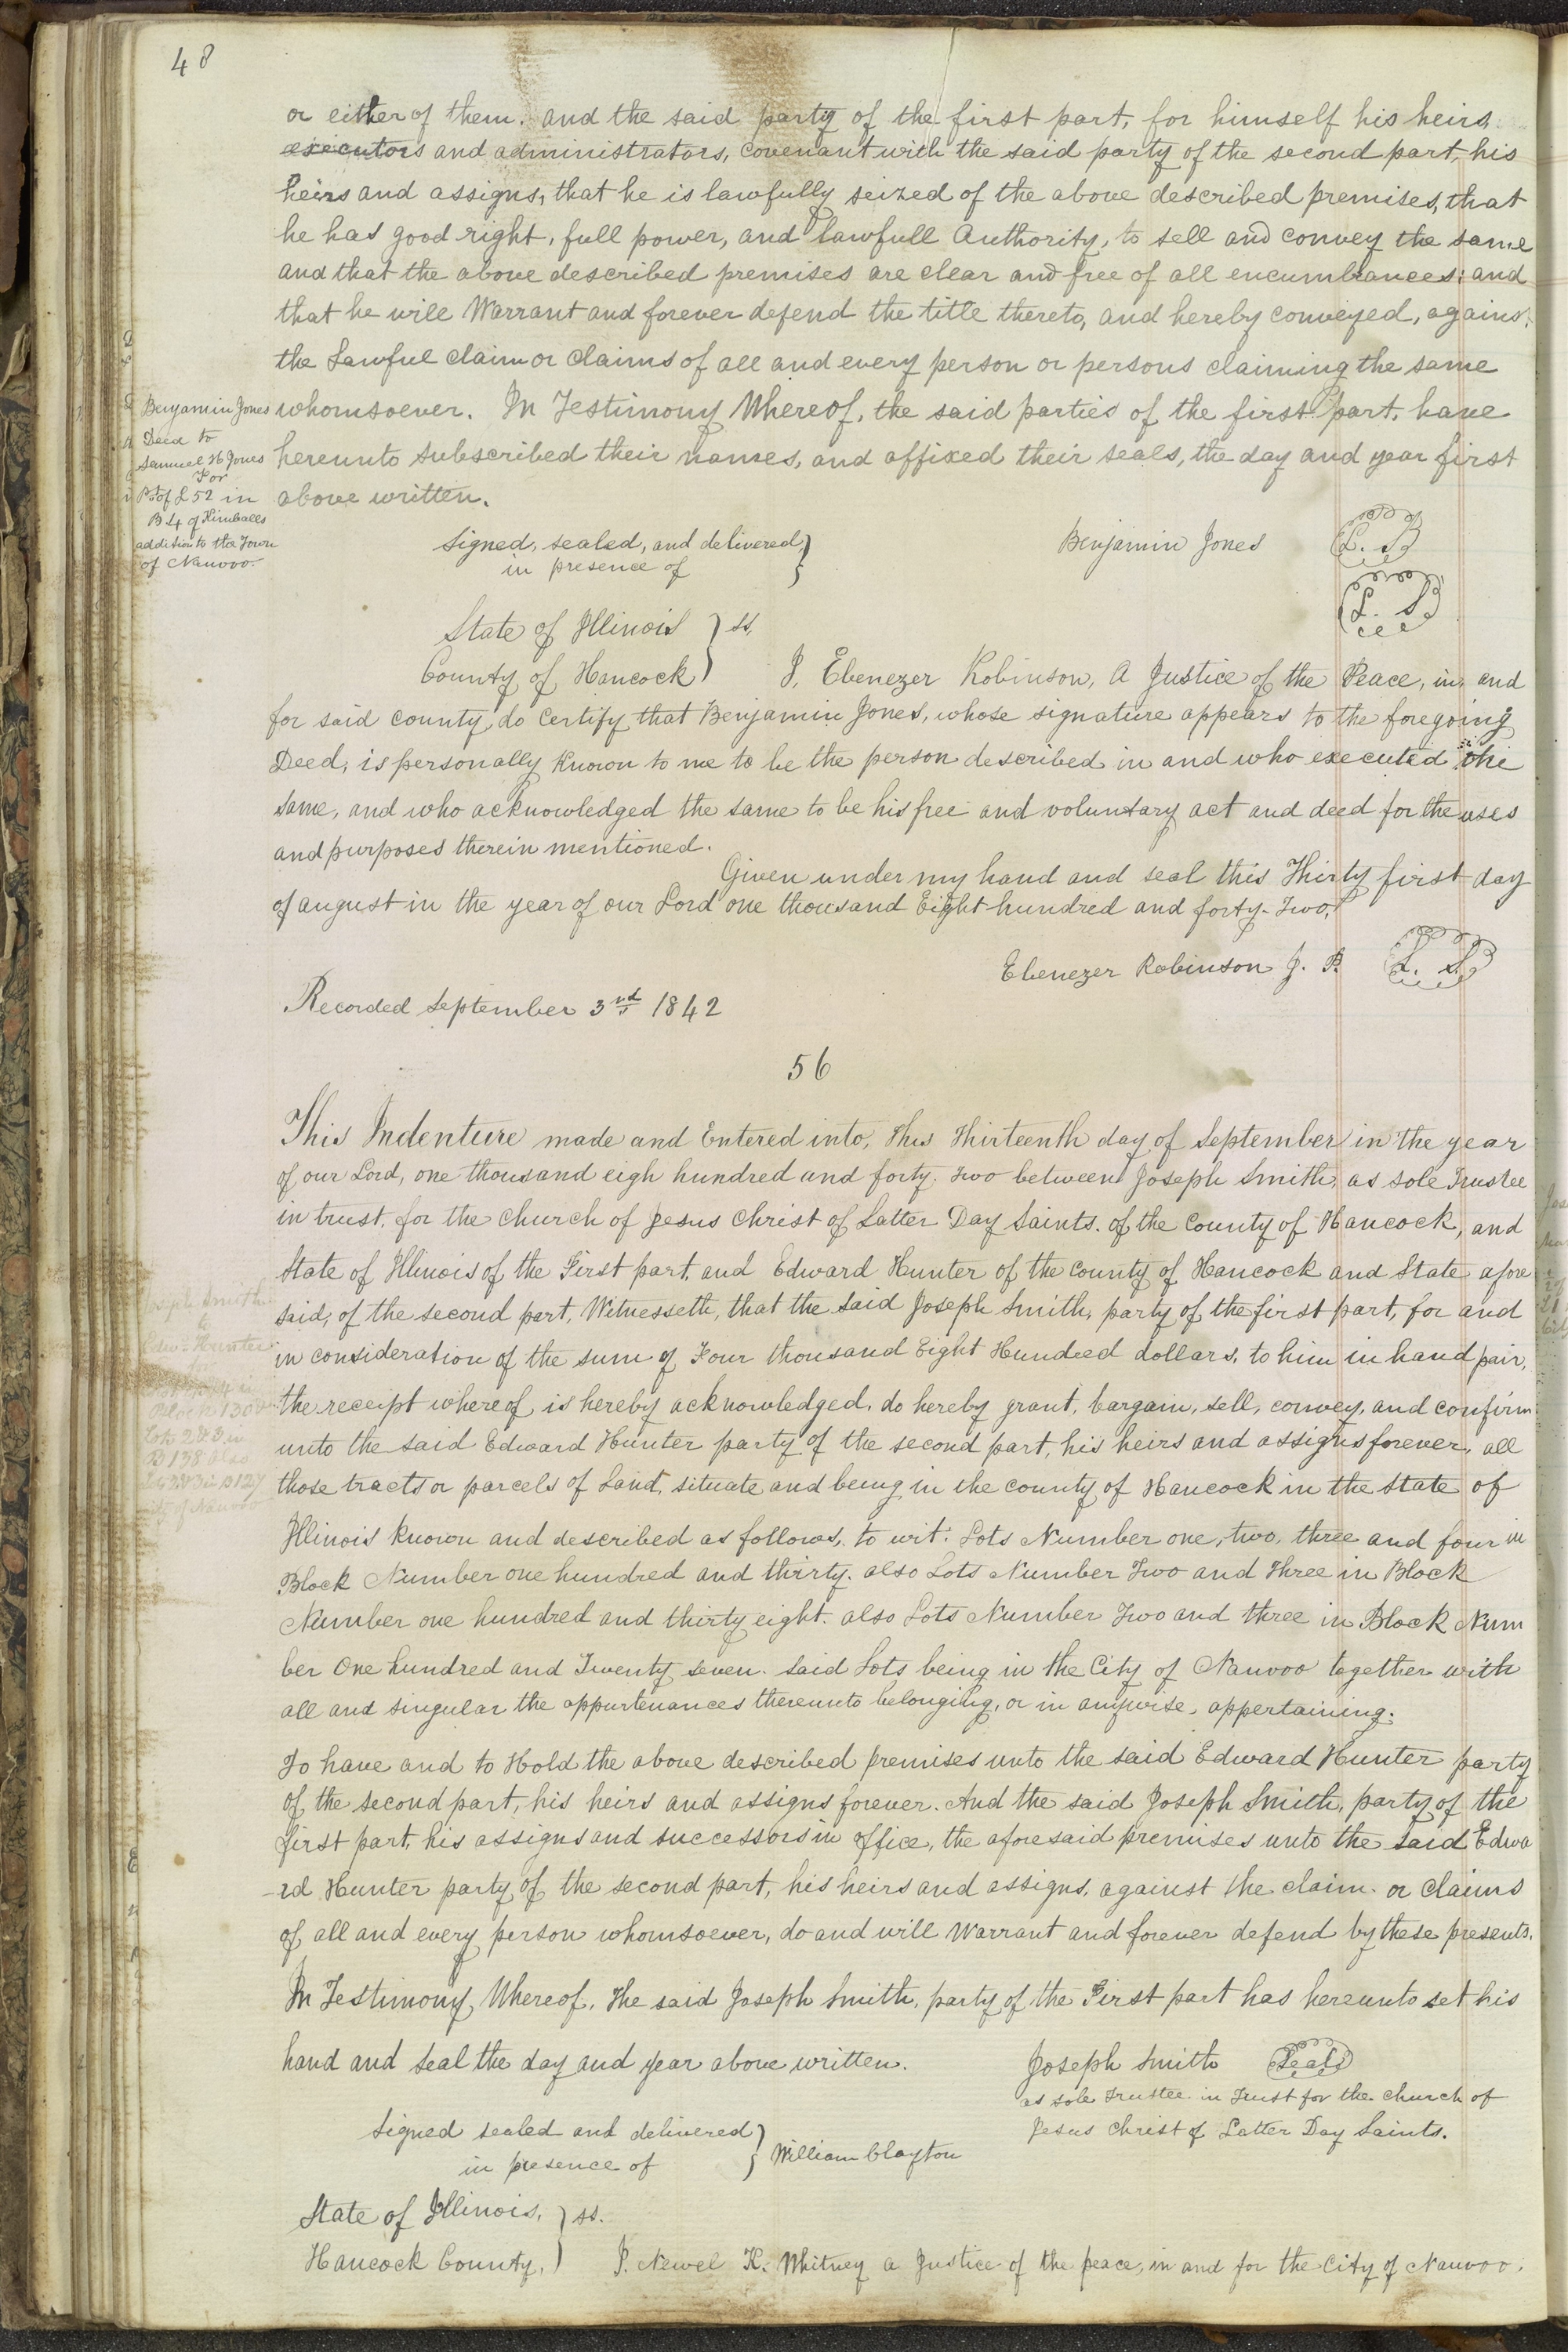 48
or either of them. and the said party of the first part, for himself his heirs
executors and administrators, covenant with the said party of the second part, his
heirs and assigns, that he is lawfully seized of the above described premises, that
he has good right, full power, and lawfull Authority, to sell and convey the same
and that the above described premises are clear and free of all encumbrances; and
that he will Warrant and forever defend the title thereto, and hereby conveyed, against
the Lawful claim or claims of all and every person or persons claiming the same
whomsoever. In Testimony Whereof, the said parties of the first part, have
hereunto subscribed their names, and affixed their seals, the day and year first
above written.
Benjamin Jones
Deed to
Samuel H Jones
For
Pt of L 52 in
B 4 of Kimballs
addition to the Town
of Nauvoo
Signed, sealed, and delivered
in presence of
Benjamin Jones L. S
L. S
State of Illinois ss,
County of Hancock I, Ebenezer Robinson, A Justice of the Peace, in, and
for said county, do Certify that Benjamin Jones, whose signature appears to the foregoing
Deed, is personally known to me to be the person described in and who executed the
same, and who acknowledged the same to be his free and voluntary act and deed for the uses
and purposes therein mentioned.
Given under my hand and seal this Thirty first day
of august in the year of our Lord one thousand Eight hundred and forty-Two,
Ebenezer Robinson J. P. L. S
Recorded September 3rd 1842
56
This Indenture made and Entered into, This Thirteenth day of September in the year
of our Lord, one thousand eigh hundred and forty. Two between Joseph Smith, as sole Trustee
in trust, for the Church of Jesus Christ of Latter Day Saints. of the County of Hancock, and
State of Illinois of the First part, and Edward Hunter of the County of Hancock and State afore
said, of the second part, Witnesseth, that the said Joseph Smith, party of the first part, for and
in consideration of the sum of Four thousand Eight Hundred dollars, to him in hand paid,
the receipt whereof is hereby acknowledged, do hereby grant, bargain, sell, convey, and confirm
unto the said Edward Hunter party of the second part, his heirs and assigns forever, all
those tracts or parcels of Land, situate and being in the county of Hancock in the State of
Illinois known and described as follows, to wit: Lots Number one, two, three and four in
Block Number one hundred and thirty. also Lots Number Two and Three in Block
Number one hundred and thirty eight. also Lots Number Two and three in Block Num
ber One hundred and Twenty seven. Said Lots being in the City of Nauvoo together with
all and singular the appurtenances thereunto belonging, or in anywise, appertaining.
Joseph Smith
to
Hunter
Block 130
Lots 2 & 3 in
B 138 also
2 & 3 in B 127
of Nauvoo
To have and to Hold the above described premises unto the said Edward Hunter party
of the second part, his heirs and assigns forever. And the said Joseph Smith, party of the
first part, his assigns and successors in office, the aforesaid premises unto the said Edwa
-rd Hunter party of the second part, his heirs and assigns, against the claim. or claims
of all and every person whomsoever, do and will Warrant and forever defend by these presents.
In Testimony Whereof, The said Joseph Smith, party of the First part has hereunto set his
hand and seal the day and year above written.
Joseph Smith Seal
as sole Trustee in Trust for the Church of
Jesus Christ of Latter Day Saints.
Signed sealed and delivered
in presence of William Clayton
State of Illinois, ss.
Hancock County, I. Newel K. Whitney a Justice of the peace, in and for the City of Nauvoo.